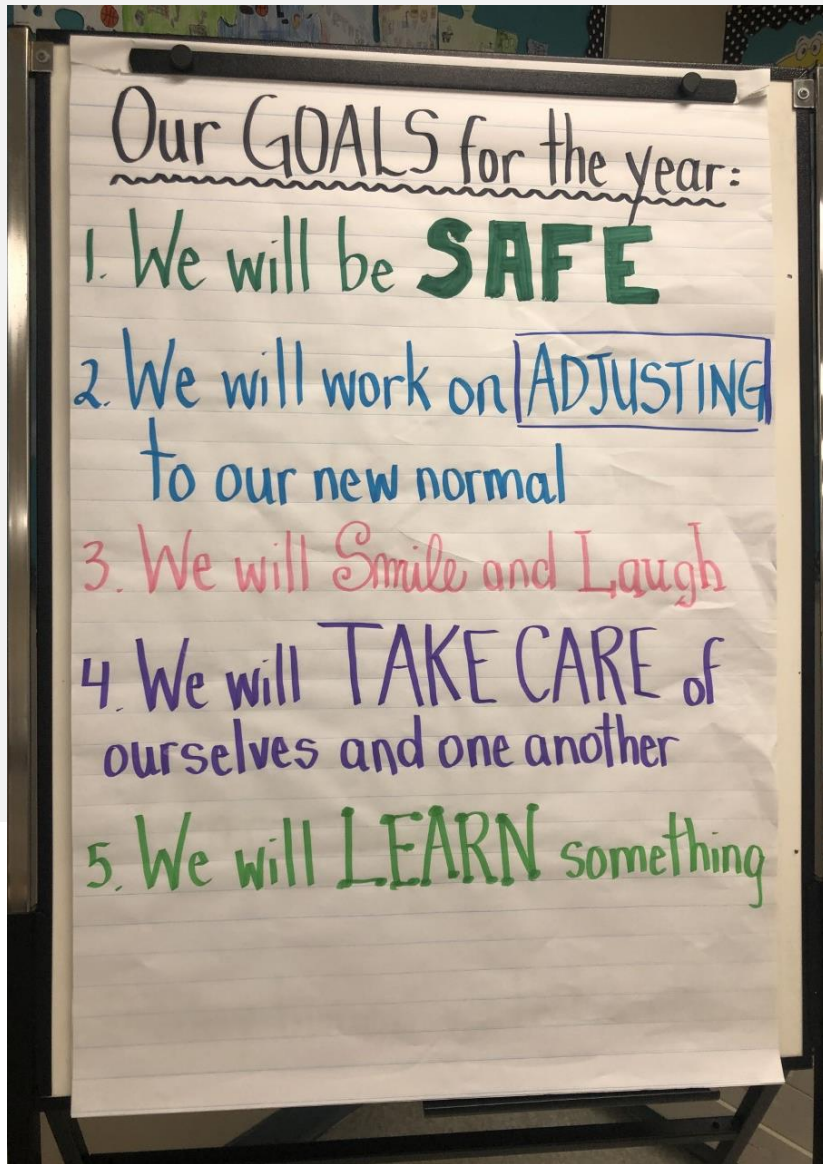 Our GOALS for the year:
1. We will be SAFE
2. We will work on ADJUSTING
to our new normal
3. We will Smile and Laugh
4. We will TAKE CARE of
ourselves and one another
5. We will LEARN something